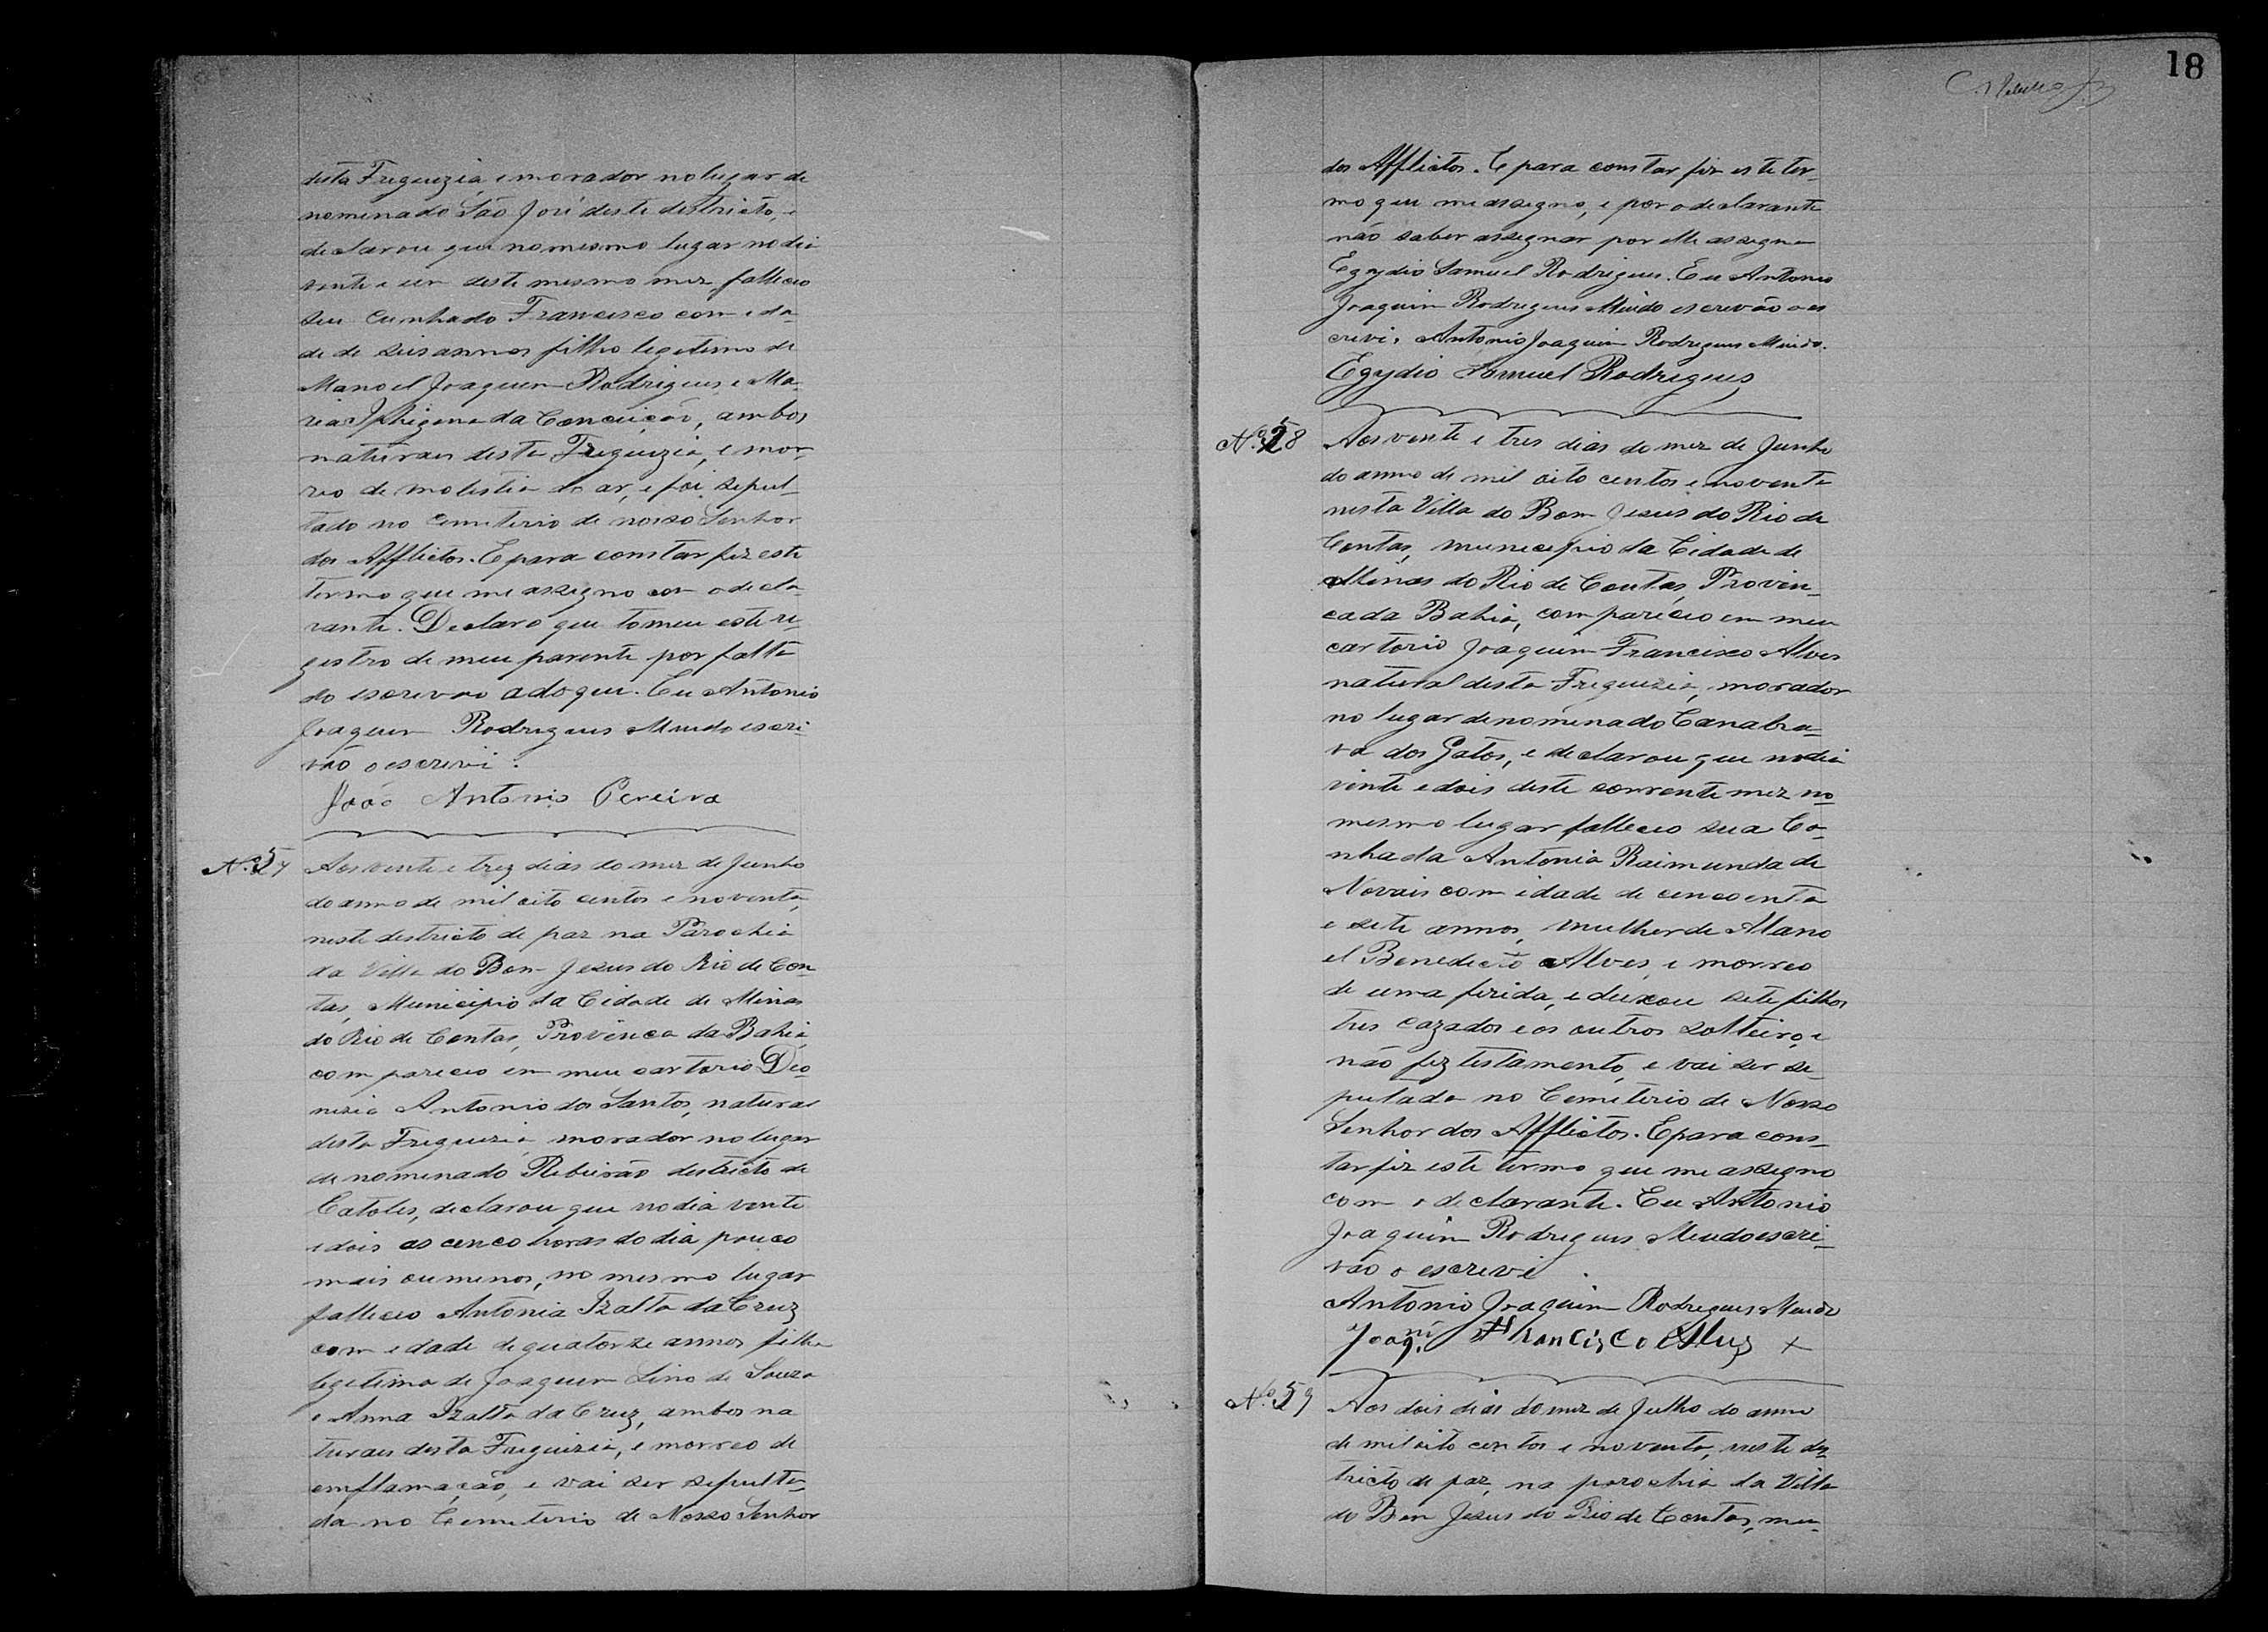 desta Freguezia, e morador no lugar de
nomenado São José deste destricto, e
declarou que no mesmo lugar no dia
vente e um deste mesmo mez falleceo
seu cunhado Francisco com ida-
de de seis annos filho legetimo de
Manoel Joaquim Rodrigues e Ma-
ria Iphigena da Conceição, ambos
naturaes desta Freguezia, e mor-
reo de molestia do ar, e foi sepul-
tado no Cemiterio de nosso Senhor
dos Afflictos. E para constar fiz este
termo que me assegno com o decla-
rante. Declaro que tomei este re-
gestro de meu parente por falta
do escrevão adoque. Eu Antonio
Joaquim Rodrigues Miudo escri-
vão o escrevi.
João Antonio Pereira
N.º 57 Aos vente e trez dias do mez de Junho
do anno de mil oito centos e noventa,
neste destricto de paz na Parochia
da Villa do Bom Jesus do Rio de Con-
tas, Municipio da Cidade de Minas
do Rio de Contas, Provinca da Bahia,
compareceo em meu cartorio Deo-
nizio Antonio dos Santos, natural
desta Freguezia, morador no lugar
denomenado Ribeirão destricto de
Catoles, declarou que no dia vente
e dois as cenco horas do dia pouco
mais ou menos, no mesmo lugar
falleceo Antonia Izalta da Cruz
com edade de quatorze annos filha
legetima de Joaquim Lino de Souza
e Anna Izalta da Cruz, ambos na
turaes desta Freguizia, e morreo de
emflamação, e vai ser sepulta-
da no Cemeterio de Nosso Senhor
18
dos Afflictos. E para constar fiz este ter-
mo que me assegno, e por o declarante
não saber assegnar por elle assegna
Egydio Samuel Rodrigues. Eu Antonio
Joaquim Rodrigues Miudo escrevão o es
crevi. Antonio Joaquim Rodrigues Miudo.
Egydio Samuel Rodrigues
N.º 58 Aos vente e tres dias do mez de Junho
do anno de mil oito centos e noventa
nesta Villa do Bom Jesus do Rio de
Contas, municipio da Cidade de
Minas do Rio de Contas, Provin-
ca da Bahia, compareceo em meu
cartorio Joaquim Francisco Alves
natural desta Freguezia, morador
no lugar denomenado Canabra-
va dos Gatos, e declarou que no dia
vente e dois deste corrente mez no
mesmo lugar falleceo sua Co-
nhada Antonia Raimunda de
Novais com idade de cencoenta
e sete annos, mulher de Mano
el Benedicto Alves, e morreo
de uma firida, e deixou sete filhos
tres cazados e os outros solteiros, e
não fez testamento, e vai ser se-
pultada no Cemeterio de Nosso
Senhor dos Afflictos. E para cons-
tar fiz este termo que me assegno
com o declarante. Eu Antonio
Joaquim Rodrigues Miudo escri-
vão o escrevi.
Antonio Joaquim Rodrigues Miudo
Joaqm. Francisco Alves
N.º 59 Aos dois dias do mez de Julho do anno
de mil oito centos e noventa, neste des-
tricto de paz, na parochia da Villa
do Bom Jesus do Rio de Contas, mu-